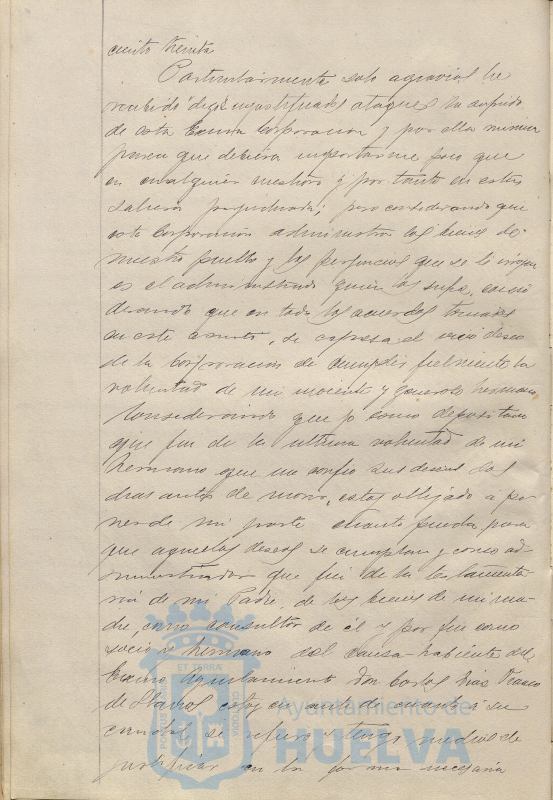 ciento treinta
Particularmente solo agravios he
recibido injustificados ataques he sufrido
de esta Excma Corporacion y por ella misma
parece que debiera importarme poco que
en cualquier y por tanto en esta
saliera perjudicada; pero considerando que
esta Corporacion administra los bienes de
nuestro pueblo y los perjuicios que se le
es el administrado quien los sufre, consi
derando que en todos los acuerdos tomados
en este asunto, se expresa el deseo
de la Corporacion de cumplir fielmente la
voluntad de mi inocente y generoso hermano
Considerando que yo como depositario
que fui de la ultima voluntad de mi
hermano que me confio sus deseos dos
dias antes de morir, estoy obligado a po
ner de mi parte cuanto pueda para
que aquellos deseos se cumplan y como ad
ministrador que fui de la testamenta
ria de mi Padre, de los bienes de mi ma
dre, como consultor de él y por fin como
socio y hermano del causa-habiente del
Excmo Ayuntamiento Don Carlos Diaz Franco
de estoy en autos de cuanto á su
se refiere y tengo medios de
justificar en la forma necesaria
Ayuntamiento de
HUELVA